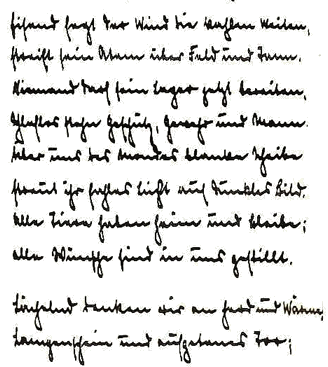 Eisend fegt der Wind die kahlen Weiten,
streift sein Atem über Feld und Tann.
Niemand darf sein Lager jetzt bereiten,
schlaflos stehn Geschütz, Gewehr und Mann.
Über uns des Mondes blanke Scheibe
streut ihr fahles Licht auf dunkles Bild.
Alle Tiere haben Heim und Bleibe;
alle Wünsche sind in uns gestillt.
Lächelnd denken wir an Herd und Wärme,
Lampenschein und aufgetanes Tor;